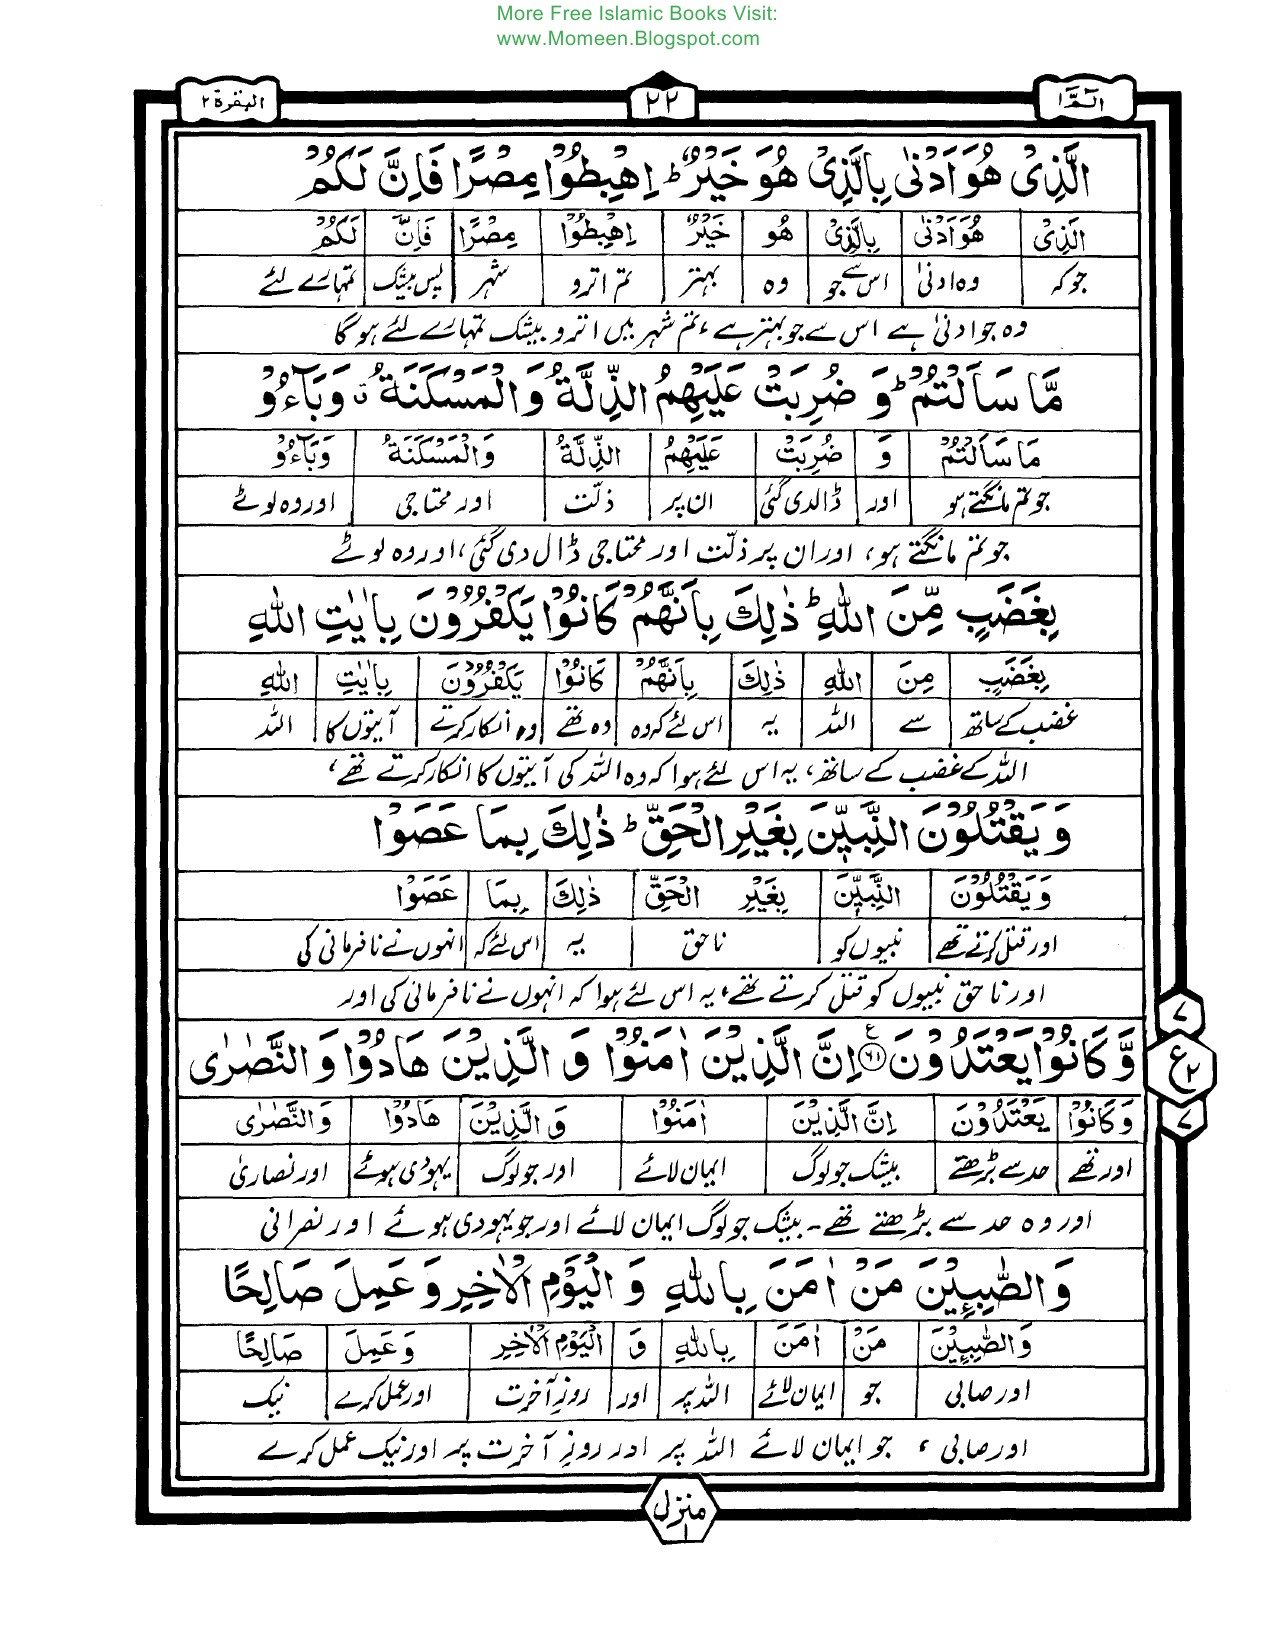 More Free Islamic Books Visit:
www.Momeen.Blogspot.com
الٓمّٓ ١ ٢٢ البقرة ٢
الَّذِیْ هُوَ اَدْنٰی بِالَّذِیْ هُوَ خَیْرٌ ؕ اِهْبِطُوْا مِصْرًا فَاِنَّ لَكُمْ
الَّذِیْ هُوَ اَدْنٰی بِالَّذِیْ هُوَ خَیْرٌ اِهْبِطُوْا مِصْرًا فَاِنَّ لَكُمْ
جو کہ وہ ادنیٰ اس سے جو وہ بہتر تم اترو شہر پس بیشک تمہارے لئے
وہ جو ادنیٰ ہے اس سے جو بہتر ہے، تم شہر میں اترو بیشک تمہارے لئے ہو گا
مَّا سَاَلْتُمْ ؕ وَ ضُرِبَتْ عَلَیْهِمُ الذِّلَّةُ وَ الْمَسْكَنَةُ ۗ وَبَآءُوْ
مَا سَاَلْتُمْ وَ ضُرِبَتْ عَلَیْهِمُ الذِّلَّةُ وَالْمَسْكَنَةُ وَبَآءُوْ
جو تم مانگتے ہو اور ڈالدی گئی ان پر ذلّت اور محتاجی اور وہ لوٹے
جو تم مانگتے ہو، اور ان پر ذلّت اور محتاجی ڈال دی گئی، اور وہ لوٹے
بِغَضَبٍ مِّنَ اللهِ ؕ ذٰلِكَ بِاَنَّهُمْ كَانُوْا یَكْفُرُوْنَ بِاٰیٰتِ اللهِ
بِغَضَبٍ مِنَ اللهِ ذٰلِكَ بِاَنَّهُمْ كَانُوْا یَكْفُرُوْنَ بِاٰیٰتِ اللهِ
غضب کے ساتھ سے اللہ یہ اس لئے کہ وہ وہ تھے وہ انکار کرتے آیتوں کا اللہ
اللہ کے غضب کے ساتھ، یہ اس لئے ہوا کہ وہ اللہ کی آیتوں کا انکار کرتے تھے،
وَ یَقْتُلُوْنَ النَّبِیّٖنَ بِغَیْرِ الْحَقِّ ؕ ذٰلِكَ بِمَا عَصَوْا
وَ یَقْتُلُوْنَ النَّبِیّٖنَ بِغَیْرِ الْحَقِّ ذٰلِكَ بِمَا عَصَوْا
اور قتل کرتے تھے نبیوں کو ناحق یہ اس لئے کہ انہوں نے نافرمانی کی
اور ناحق نبیوں کو قتل کرتے تھے، یہ اس لئے ہوا کہ انہوں نے نافرمانی کی اور
وَّ كَانُوْا یَعْتَدُوْنَ ۶۱ ع اِنَّ الَّذِیْنَ اٰمَنُوْا وَ الَّذِیْنَ هَادُوْا وَ النَّصٰرٰی
۷
ع ۲
۷
وَ كَانُوْا یَعْتَدُوْنَ اِنَّ الَّذِیْنَ اٰمَنُوْا وَ الَّذِیْنَ هَادُوْا وَالنَّصٰرٰی
اور تھے حد سے بڑھتے بیشک جو لوگ ایمان لائے اور جو لوگ یہودی ہوئے اور نصاریٰ
اور وہ حد سے بڑھتے تھے۔ بیشک جو لوگ ایمان لائے اور جو یہودی ہوئے اور نصرانی
وَ الصّٰبِـِٕیْنَ مَنْ اٰمَنَ بِاللهِ وَ الْیَوْمِ الْاٰخِرِ وَ عَمِلَ صَالِحًا
وَ الصّٰبِـِٕیْنَ مَنْ اٰمَنَ بِاللهِ وَ الْیَوْمِ الْاٰخِرِ وَ عَمِلَ صَالِحًا
اور صابی جو ایمان لائے اللہ پر اور روزِ آخرت اور عمل کرے نیک
اور صابی، جو ایمان لائے اللہ پر اور روزِ آخرت پر اور نیک عمل کرے
منزل ۱